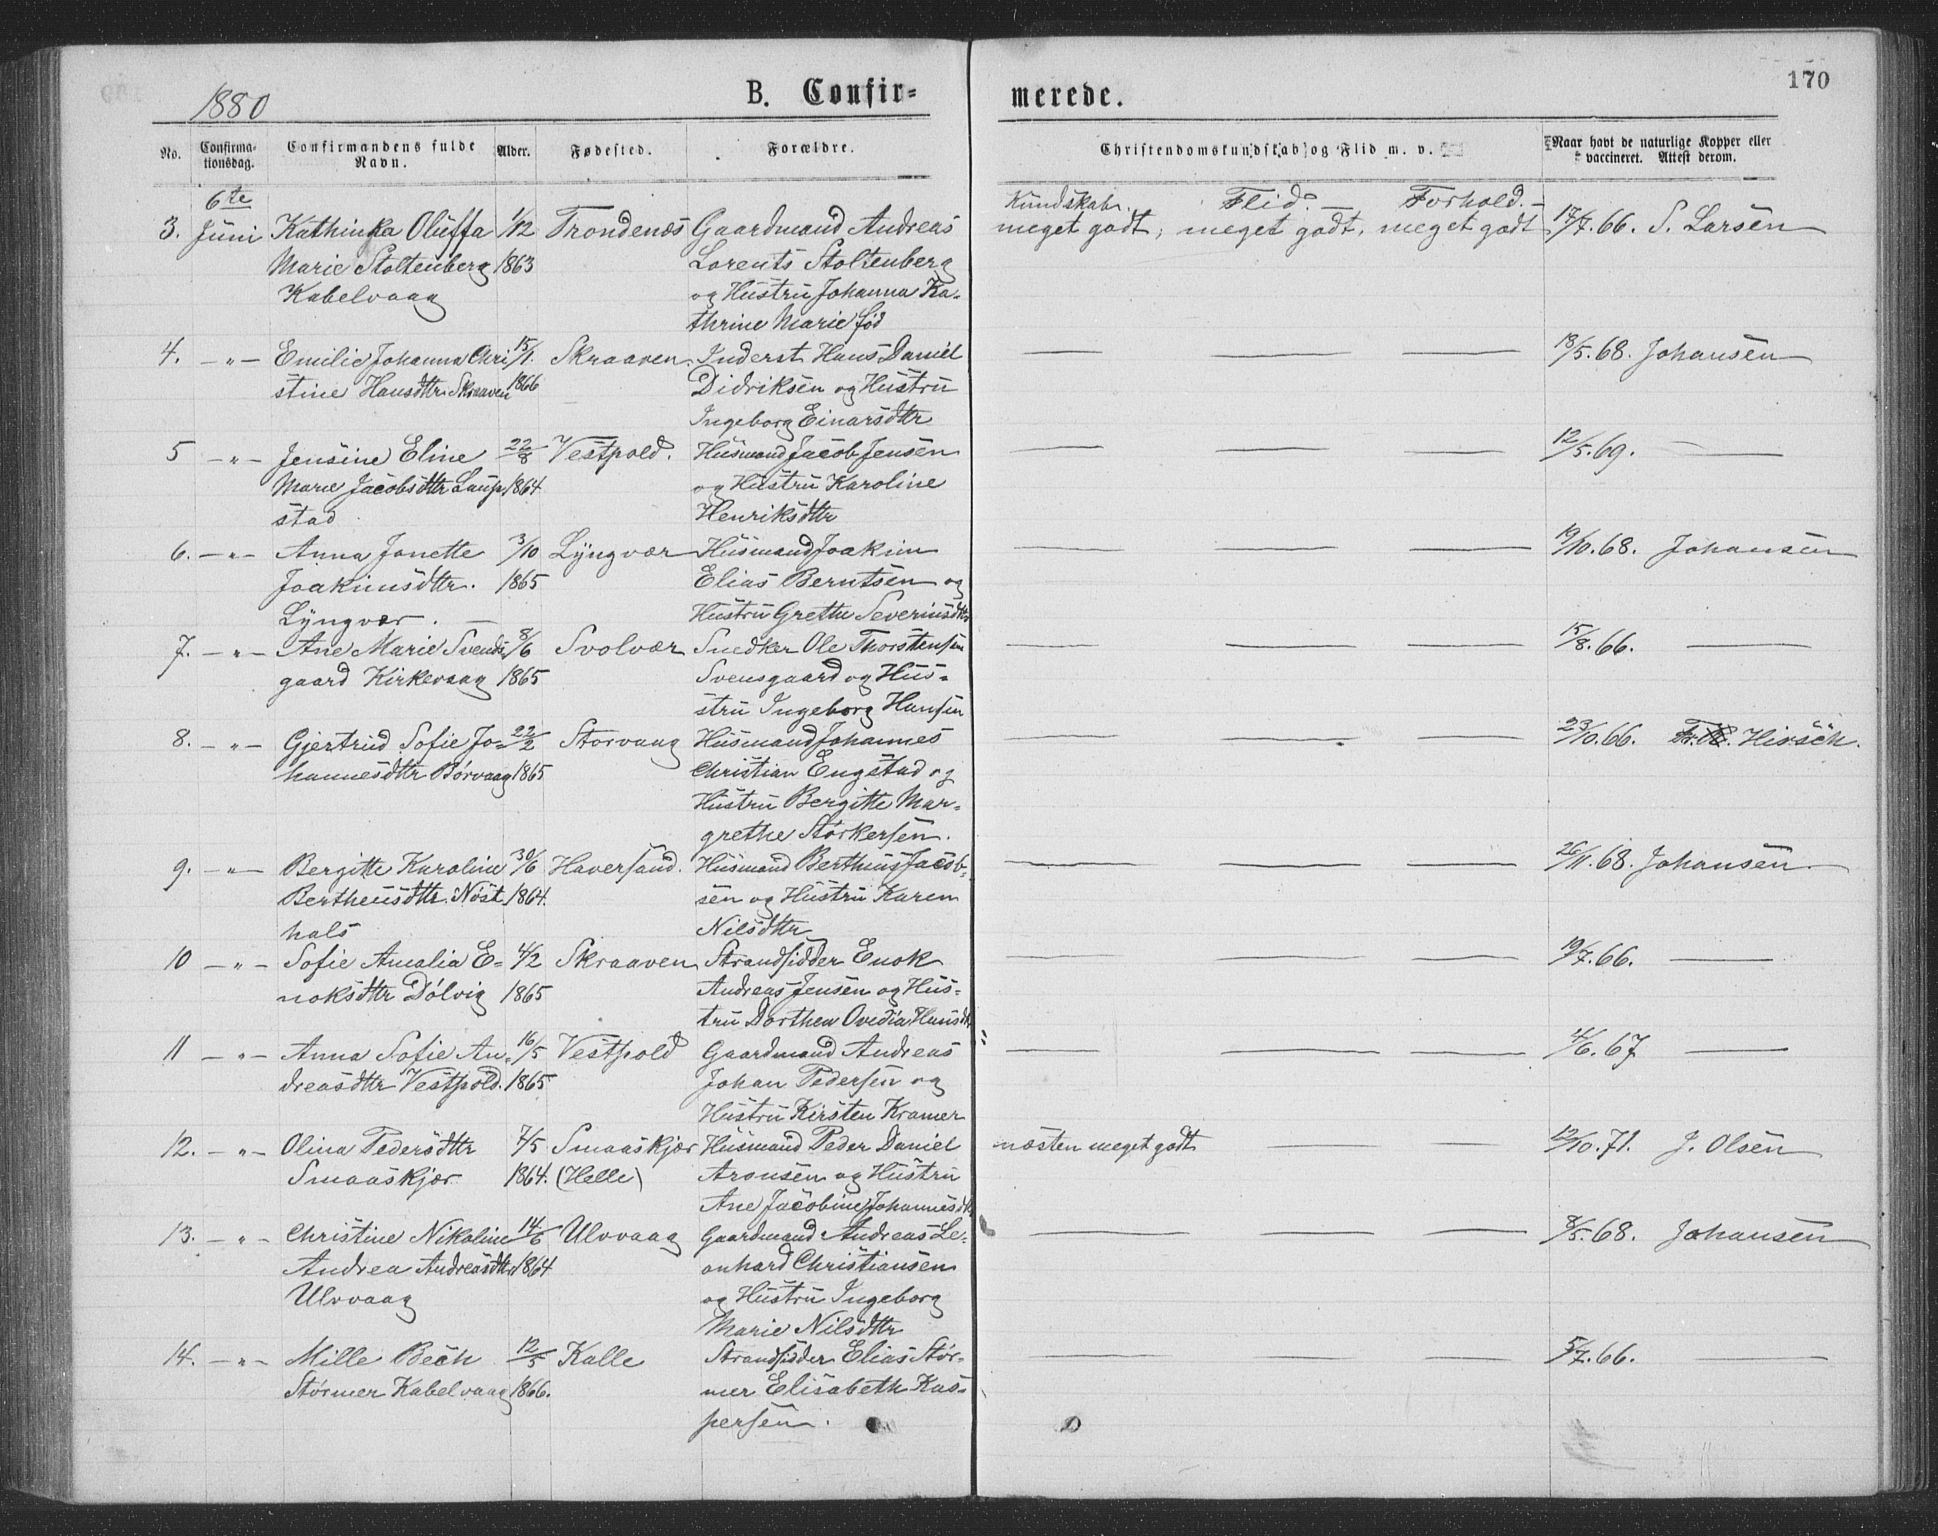 170
1880
B. Confir-
merede.
No.
Confirma-
tionsdag.
Confirmandens fulde
Navn.
Alder.
Fødested.
Forældre.
Christendomskundskab og Flid m. v.
Naar havt de naturlige Kopper eller
vaccineret. Attest derom.
6te
Kundskab. Flid. — Forhold. —
3. Juni Kathinka Oluffa 1/12 Trondenæs Gaardmand Andreas meget godt, meget godt, meget godt 17/7.66. S. Larsen
Marie Stoltenberg 1863 Lorents Stoltenberg
Kabelvaag og Hustru Johanna Ka-
thrine Marie fød
4. — " — Emilie Johanna Chri 15/1. Skraaven Inderst Hans Daniel — — — 18/5.68. Johansen
stine Hansdttr Skraaven 1866 Didriksen og Hustru
Ingeborg Einarsdttr
5 — " — Jensine Eline 22/8 Vestpold. Husmand Jacob Jensen — — — 12/5.69. —
Marie Jacobsdttr Laup 1864 og Hustru Karoline
stad Henriksdttr
6. — " — Anna Janette 3/10 Lyngvær Husmand Joakim — — — 19/10.68. Johansen
Joakimsdttr. 1865 Elias Berntsen og
Lyngvær. — Hustru Grethe Severinsdttr
7. — " — Ane Marie Svends 8/6 Svolvær Snedker Ole Thorstensen — — — 15/8.66. —
gaard Kirkevaag 1865 Svensgaard og Hus-
stru Ingeborg Hansen
8. — " — Gjertrud Sofie Jo- 22/2 Storvaag Husmand Johannes — — — 23/10.66. Hirsch.
hannesdttr Børvaag 1865 Christian Engstad og
Hustru Bergitte Mar-
grethe Størkersen.
9. — " — Bergitte Karoline 30/6 Haversand. Husmand Bertheus Jacob- — — — 26/11.68. Johansen.
Bertheusdttr. Nøst 1864. sen og Hustru Karen
hals Nilsdttr
10 — " — Sofie Amalia E- 4/2 Skraaven Strandsidder Enok — — — 19/7.66. —
noksdttr Dølvig 1865 Andreas Jensen og Hus-
tru Dorthea Ovedia Hansdt
11 — " — Anna Sofie An- 16/5 Vestpold Gaardmand Andreas — — — 4/6.67 —
dreasdttr Vestpold. 1865 Johan Pedersen og
Hustru Kirsten Kramer
12. — " — Olina Pedersdttr 7/5 Smaaskjær Husmand Peder Daniel næsten meget godt — — 12/10.71. J. Olsen
Smaaskjær 1864. (Helle) Aronsen og Hustru
Ane Jacobine Johannesdt
13. — " — Christine Nikoline 14/6 Ulvvaag Gaardmand Andreas Le- — — — 8/5.68. Johansen
Andrea Andreasdttr 1864 onhard Christiansen
Ulvvaag og Hustru Ingeborg
Marie Nilsdttr
14. — " — Mille Bech 12/5 Kalle Strandsidder Elias Stør- — — — 5/7.66. —
Størmer Kabelvaag 1866. mer Elisabeth Kas-
persen.